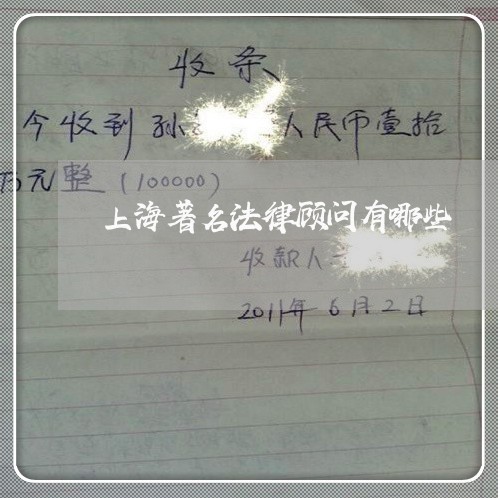 收条
今收到孙 人民币壹拾
万元整(100000)
上海著名法律顾问有哪些
收款人:
2011年6月2日